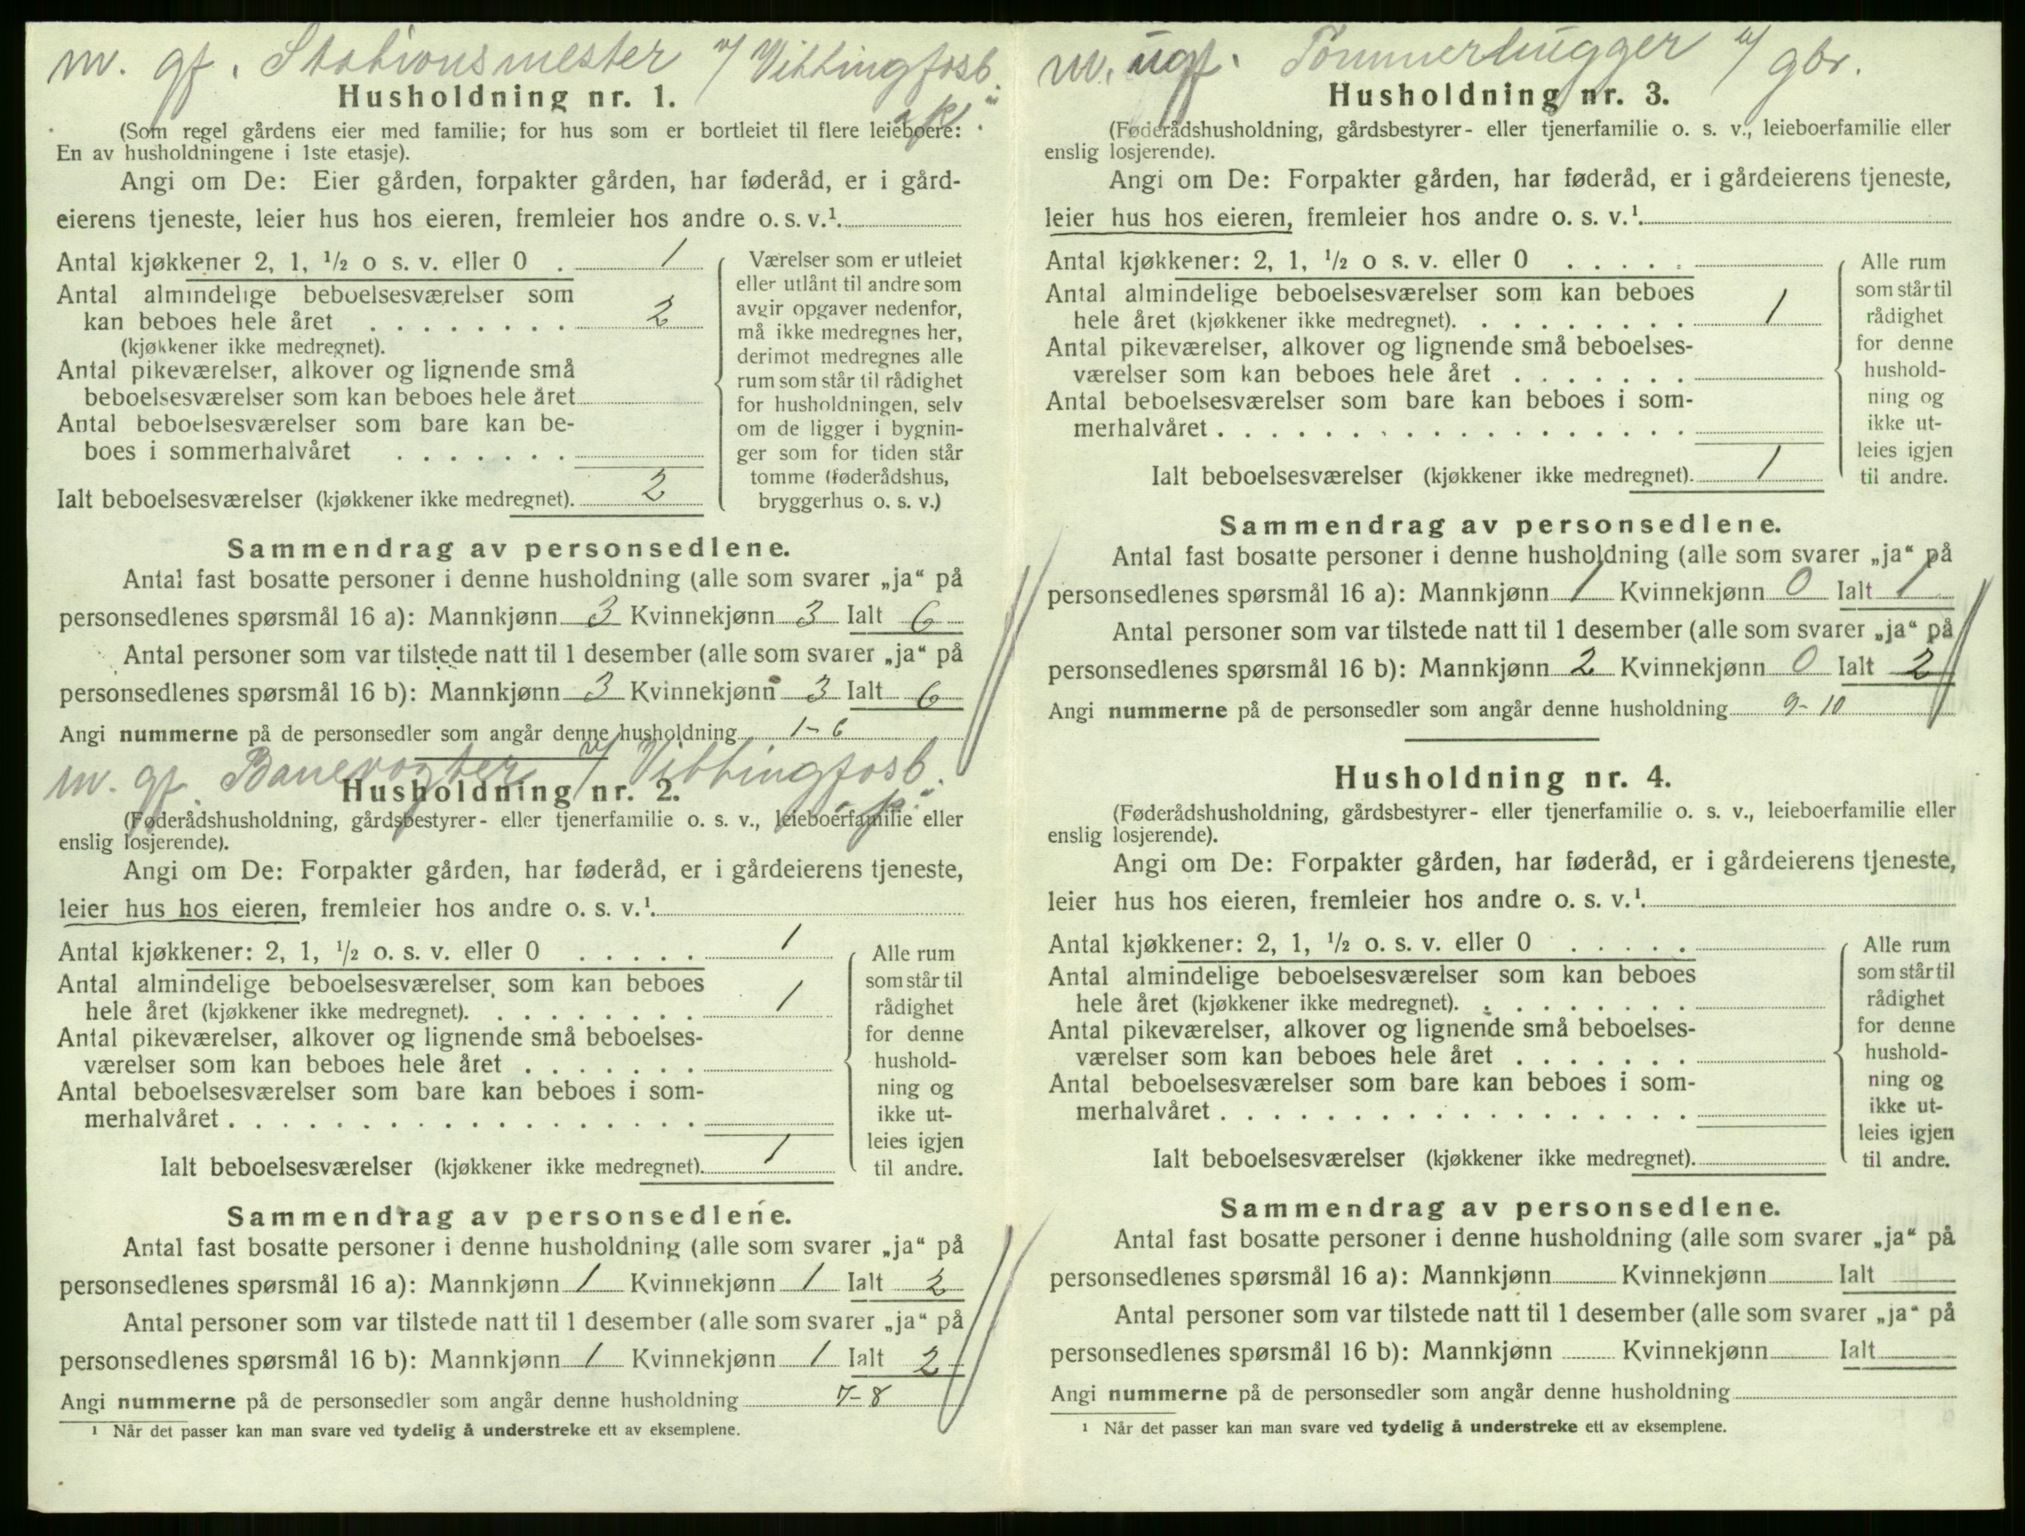 m. gf. Stationsmester v/ Vittingfosb.
Husholdning nr. 1.
(Som regel gårdens eier med familie; for hus som er bortleiet til flere leieboere:
En av husholdningene i 1ste etasje).
Angi om De: Eier gården, forpakter gården, har føderåd, er i gård-
eierens tjeneste, leier hus hos eieren, fremleier hos andre o. s. v.¹.
Antal kjøkkener 2, 1, ½ o s. v. eller 0 . 1
Antal almindelige beboelsesværelser som
kan beboes hele året . . . . . . . . 2
(kjøkkener ikke medregnet).
Antal pikeværelser, alkover og lignende små
beboelsesværelser som kan beboes hele året
Antal beboelsesværelser som bare kan be-
boes i sommerhalvåret . . . . . . .
Ialt beboelsesværelser (kjøkkener ikke medregnet). 2
Værelser som er utleiet
eller utlånt til andre som
avgir opgaver nedenfor,
må ikke medregnes her,
derimot medregnes alle
rum som står til rådighet
for husholdningen, selv
om de ligger i bygnin-
ger som for tiden står
tomme (føderådshus,
bryggerhus o. s. v.)
Sammendrag av personsedlene.
Antal fast bosatte personer i denne husholdning (alle som svarer „ja“ på
personsedlenes spørsmål 16 a): Mannkjønn 3 Kvinnekjønn 3 Ialt 6
Antal personer som var tilstede natt til 1 desember (alle som svarer „ja“ på
personsedlenes spørsmål 16 b): Mannkjønn 3 Kvinnekjønn 3 Ialt 6
Angi nummerne på de personsedler som angår denne husholdning 1-6
m. gf. Banevogter v/ Vittingfosb.
Husholdning nr. 2.
(Føderådshusholdning, gårdsbestyrer- eller tjenerfamilie o. s. v., leieboerfamilie eller
enslig losjerende).
Angi om De: Forpakter gården, har føderåd, er i gårdeierens tjeneste,
leier hus hos eieren, fremleier hos andre o. s. v.¹.
Antal kjøkkener: 2, 1, ½ o. s. v. eller 0 . . . . . 1
Antal almindelige beboelsesværelser som kan beboes
hele året (kjøkkener ikke medregnet). . . . . . . . . 1
Antal pikeværelser, alkover og lignende små beboelses-
værelser som kan beboes hele året . . . . . . .
Antal beboelsesværelser som bare kan beboes i som-
merhalvåret . . . . . . . . . . . . . . . . . .
Ialt beboelsesværelser (kjøkkener ikke medregnet). 1
Alle rum
som står til
rådighet
for denne
hushold-
ning og
ikke ut-
leies igjen
til andre.
Sammendrag av personsedlene.
Antal fast bosatte personer i denne husholdning (alle som svarer „ja“ på
personsedlenes spørsmål 16 a): Mannkjønn 1 Kvinnekjønn 1 Ialt 2
Antal personer som var tilstede natt til 1 desember (alle som svarer „ja“ på
personsedlenes spørsmål 16 b): Mannkjønn 1 Kvinnekjønn 1 Ialt 2
Angi nummerne på de personsedler som angår denne husholdning 7-8
¹ Når det passer kan man svare ved tydelig å understreke ett av eksemplene.
m. ugf. Tømmerhugger v/ gbr.
Husholdning nr. 3.
(Føderådshusholdning, gårdsbestyrer- eller tjenerfamilie o. s. v., leieboerfamilie eller
enslig losjerende).
Angi om De: Forpakter gården, har føderåd, er i gårdeierens tjeneste,
leier hus hos eieren, fremleier hos andre o. s. v.¹.
Antal kjøkkener: 2, 1, ½ o s. v. eller 0 . . . . .
Antal almindelige beboelsesværelser som kan beboes
hele året (kjøkkener ikke medregnet). . . . . . . . . 1
Antal pikeværelser, alkover og lignende små beboelses-
værelser som kan beboes hele året . . . . . . .
Antal beboelsesværelser som bare kan beboes i som-
merhalvåret . . . . . . . . . . . . . . . . . .
Ialt beboelsesværelser (kjøkkener ikke medregnet). 1
Alle rum
som står til
rådighet
for denne
hushold-
ning og
ikke ut-
leies igjen
til andre.
Sammendrag av personsedlene.
Antal fast bosatte personer i denne husholdning (alle som svarer „ja“ på
personsedlenes spørsmål 16 a): Mannkjønn 1 Kvinnekjønn 0 Ialt 1
Antal personer som var tilstede natt til 1 desember (alle som svarer „ja“ på
personsedlenes spørsmål 16 b): Mannkjønn 2 Kvinnekjønn 0 Ialt 2
Angi nummerne på de personsedler som angår denne husholdning 9-10
Husholdning nr. 4.
(Føderådshusholdning, gårdsbestyrer- eller tjenerfamilie o. s. v., leieboerfamilie eller
enslig losjerende).
Angi om De: Forpakter gården, har føderåd, er i gårdeierens tjeneste,
leier hus hos eieren, fremleier hos andre o. s. v.¹.
Antal kjøkkener: 2, 1, ½ o. s. v. eller 0 . . . . .
Antal almindelige beboelsesværelser som kan beboes
hele året (kjøkkener ikke medregnet). . . . . . . . .
Antal pikeværelser, alkover og lignende små beboelses-
værelser som kan beboes hele året . . . . . . .
Antal beboelsesværelser som bare kan beboes i som-
merhalvåret . . . . . . . . . . . . . . . . . .
Ialt beboelsesværelser (kjøkkener ikke medregnet).
Alle rum
som står til
rådighet
for denne
hushold-
ning og
ikke ut-
leies igjen
til andre.
Sammendrag av personsedlene.
Antal fast bosatte personer i denne husholdning (alle som svarer „ja“ på
personsedlenes spørsmål 16 a): Mannkjønn Kvinnekjønn Ialt
Antal personer som var tilstede natt til 1 desember (alle som svarer „ja“ på
personsedlenes spørsmål 16 b): Mannkjønn Kvinnekjønn Ialt
Angi nummerne på de personsedler som angår denne husholdning
¹ Når det passer kan man svare ved tydelig å understreke ett av eksemplene.